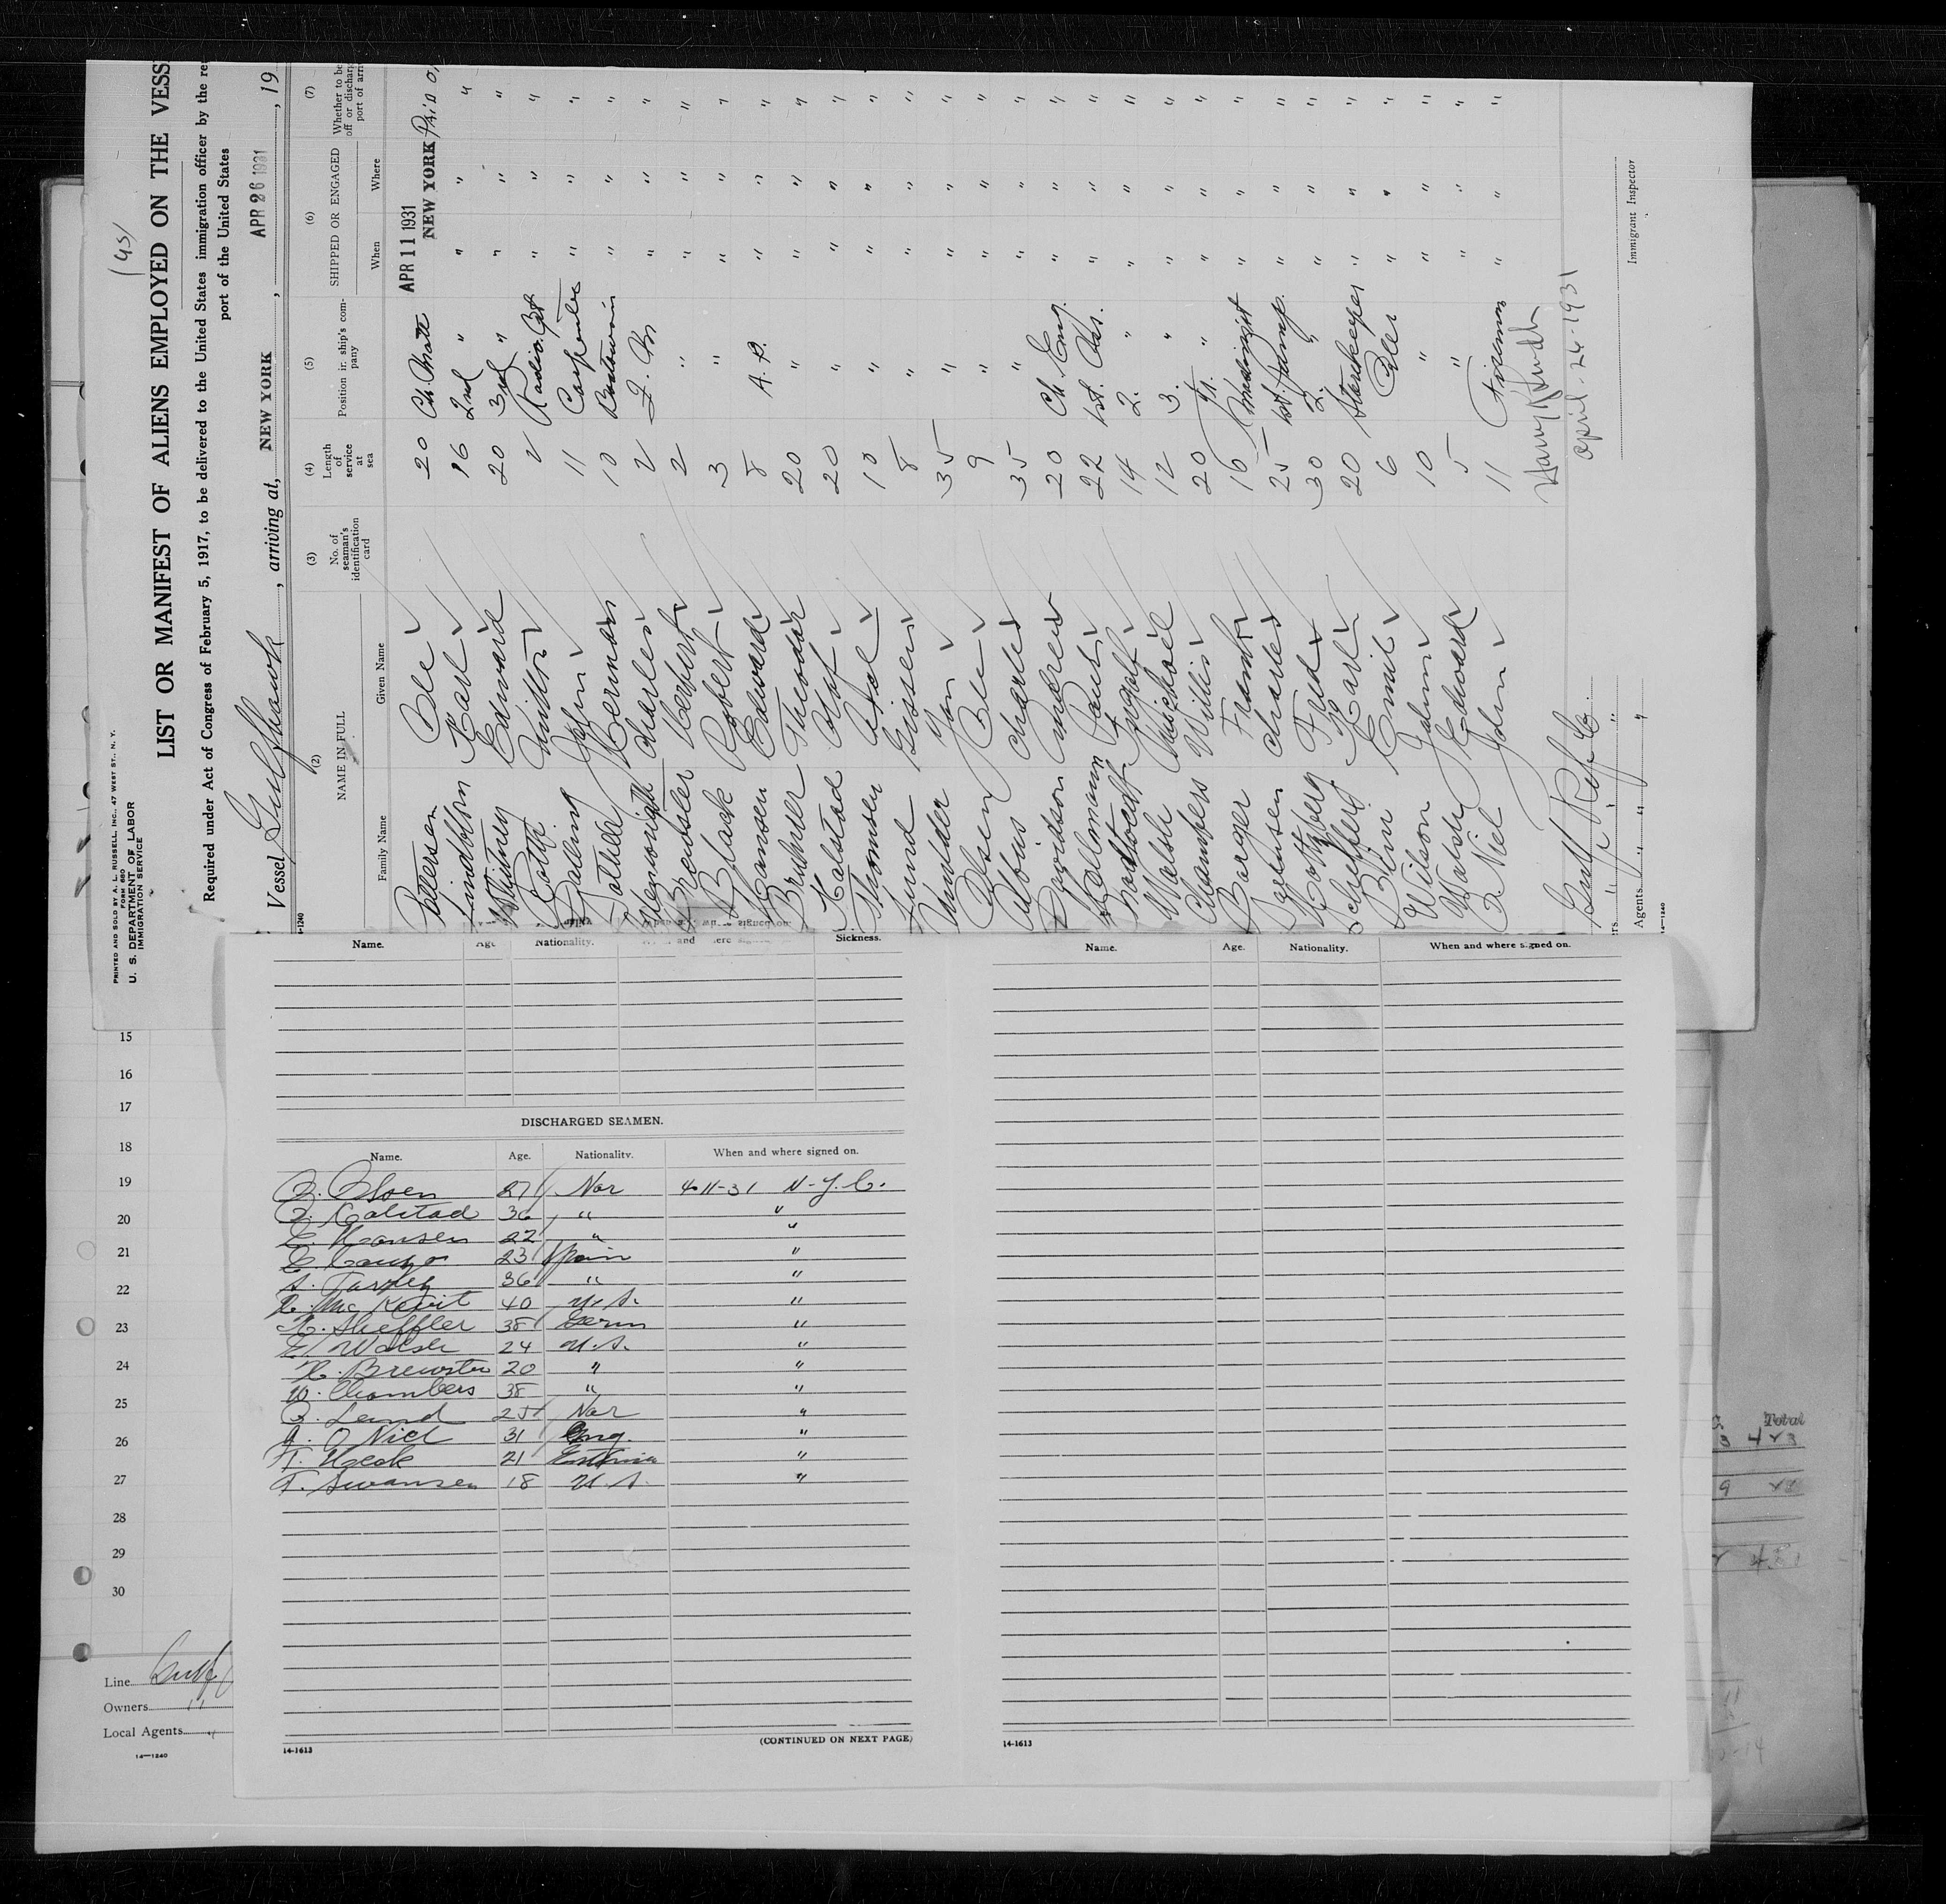 (45)
PRINTED AND SOLD BY A. L. RUSSELL, INC., 47 WEST ST., N. Y.
FORM 680
U. S. DEPARTMENT OF LABOR
IMMIGRATION SERVICE
LIST OR MANIFEST OF ALIENS EMPLOYED ON THE VESS
Required under Act of Congress of February 5, 1917, to be delivered to the United States immigration officer by the re
port of the United States
Vessel Gulfhawk, arriving at, NEW YORK, APR 26 1931, 19
14-1240
(2) (3) (4) (5) (6) (7)
NAME IN FULL No. of seaman's identification card Length of service at sea Position in ship's company SHIPPED OR ENGAGED Whether to be
off or discharg
port of arri
Family Name Given Name When Where
Pettersen Ole 20 Ch. Mate APR 11 1931 NEW YORK
Lindblom Karl 16 2nd " " " "
Whitney Edward 20 3rd " " " "
Milton 2 Radio. Opt " " "
John 11 Carpenter " " "
Herman 10 Boatswain " " "
Charles 2 " " "
Brewster Herbert 2 " " " "
Black Robert 3 " " " "
Hansen Edward 8 A. B. " " "
Bruhner Theodor 20 " " " "
Kalstad Olaf 20 " " " "
Thomsen Axel 10 " " " "
Lund 8 " " " "
Mudder Jan 35 " " " "
Olsen Ole 9 " " " "
Charles 35 " " " "
Davidson Andrew 20 Ch. Eng. " " "
Paul 22 1st. Ass. " " "
Ingolf 14 2. " " " "
Walsh Michael 12 3. " " " "
Chambers Willis 20 " " " "
Barger Frank 16 Machinist " " "
Charles 25 1st. Pump. " " "
Fred 30 2. " " " "
Scheffler Karl 20 Storekeeper " " "
Emil 6 Oiler " " "
Wilson John 10 " " " "
Walsh Edward 5 " " " "
O Niel John 11 Fireman " " "
April-26-1931
Gulf Ref. Co.
" " "
Agents " " "
Immigrant Inspector
14-1240
Name. Age Nationality. Sickness.
Name. Age. Nationality. When and where signed on.
DISCHARGED SEAMEN.
Name. Age. Nationality. When and where signed on.
O. Olsen 27 Nor 4-11-31 N-Y.C.
O. Kalstad 36 " "
E. Hansen 22 " "
23 Spain "
36 " "
40 U.S. "
K. Sheffler 38 Germ "
E. Walsh 24 U.S. "
H. Brewster 20 " "
W. Chambers 38 " "
G. Lund 25 Nor "
J. O Niel 31 Eng. "
21 Estonia "
T. Swansen 18 U.S. "
(CONTINUED ON NEXT PAGE)
14-1613
14-1613
15
16
17
18
19
20
21
22
23
24
25
26
27
28
29
30
Line Gulf
Owners "
Local Agents "
14-1240
Total